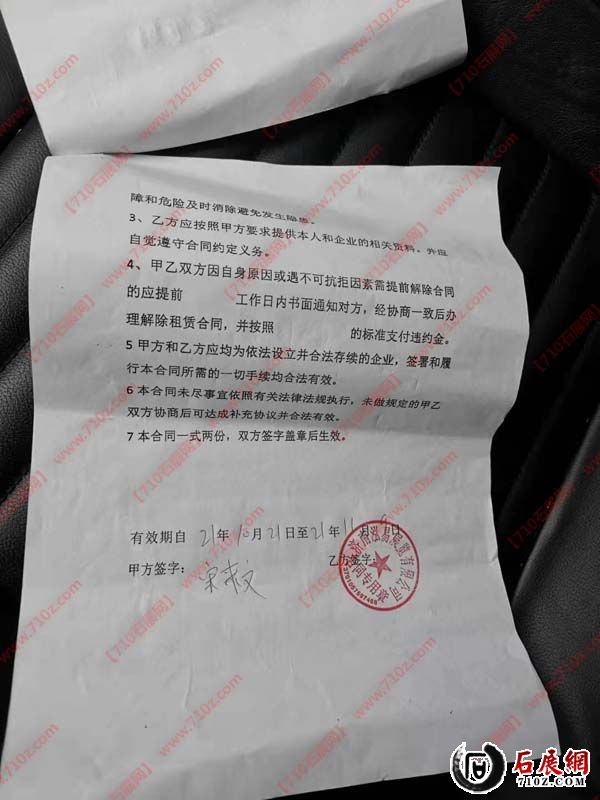 障和危险及时消除避免发生隐患。
3、乙方应按照甲方要求提供本人和企业的相关资料。并应
自觉遵守合同约定义务。
4、甲乙双方因自身原因或遇不可抗拒因素需提前解除合同
的应提前 工作日内书面通知对方，经协商一致后办
理解除租赁合同，并按照 的标准支付违约金。
5 甲方和乙方应均为依法设立并合法存续的企业，签署和履
行本合同所需的一切手续均合法有效。
6 本合同未尽事宜依照有关法律法规执行，未做规定的甲乙
双方协商后可达成补充协议并合法有效。
7 本合同一式两份，双方签字盖章后生效。
有效期自 21年10月21日至21年11月 日
甲方签字： 乙方签字：
展览有限公司
合同专用章
【710石展网】www.710z.com
石展網
710Z.COM